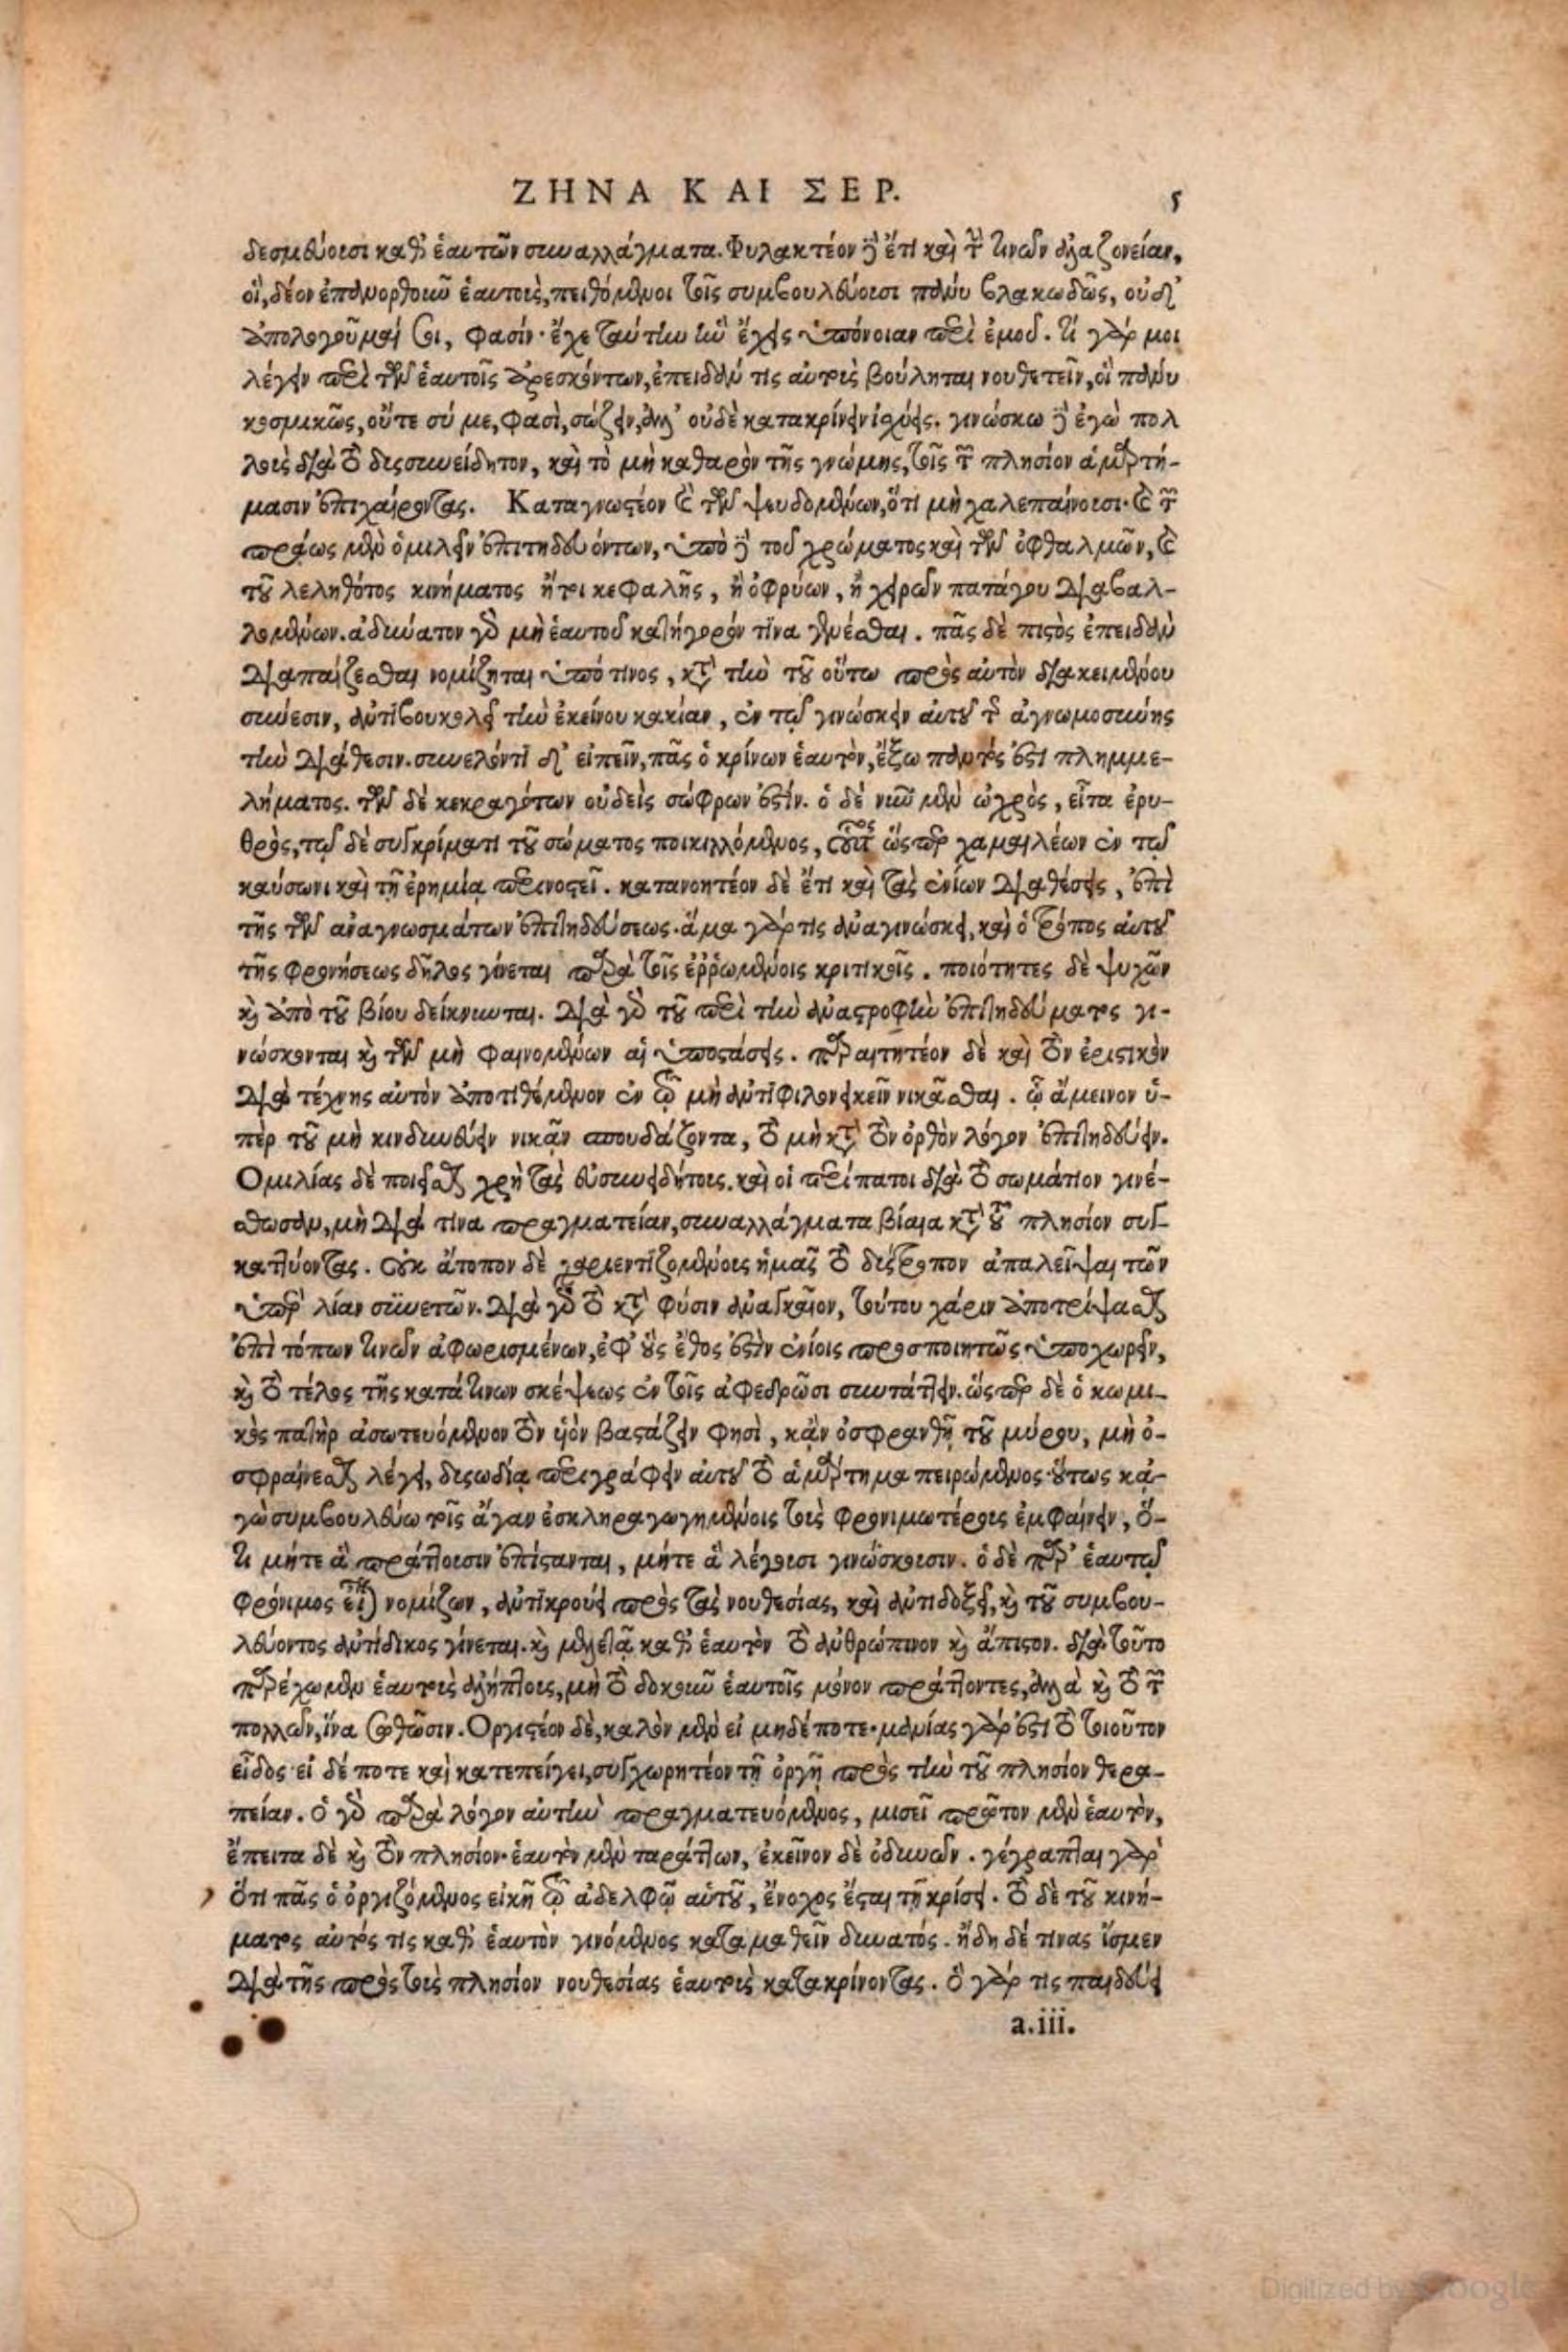 ΖΗΝΑ ΚΑΙ ΣΕΡ. 5
δεσμεύουσι καθ' ἑαυτῶν συναλλάγματα. Φυλακτέον δὲ ἔτι καὶ τὴν τινῶν ἀλαζονείαν,
οἳ, δέον ἐπανορθοῦν ἑαυτοὺς, πειθόμενοι τοῖς συμβουλεύουσι πάνυ βλακωδῶς, οὐδ'
ἀπολογοῦμαί σοι, φασίν· ἔχε ταύτην ἣν ἔχεις ὑπόνοιαν περὶ ἐμοῦ. τί γάρ μοι
λέγειν περὶ τῶν ἑαυτοῖς ἀρεσκόντων, ἐπειδὰν τις αὐτοὺς βούληται νουθετεῖν, οἳ πάνυ
κοσμικῶς, οὔτε σύ με, φασὶ, σώζειν, ἀλλ' οὐδὲ κατακρίνειν ἰσχύεις. γινώσκω δὲ ἐγὼ πολ
λοὺς διὰ τὸ δυσσυνείδητον, καὶ τὸ μὴ καθαρὸν τῆς γνώμης, τοῖς τῶν πλησίον ἁμαρτή-
μασιν ἐπιχαίροντας. Καταγνωστέον καὶ τῶν ψευδομένων, ὅτι μὴ χαλεπαίνουσι· καὶ τῶν
πράως μὲν ὁμιλεῖν ἐπιτηδευόντων, ὑπὸ δὲ τοῦ χρώματος καὶ τῶν ὀφθαλμῶν, καὶ
τοῦ λεληθότος κινήματος ἤτοι κεφαλῆς, ἢ ὀφρύων, ἢ χειρῶν πατάγου διαβαλ-
λομένων. ἀδύνατον γὰρ μὴ ἑαυτοῦ κατήγορόν τινα γενέσθαι. πᾶς δὲ πιστὸς ἐπειδὰν
διαπαίζεσθαι νομίζηται ὑπό τινος, κατὰ τὴν τοῦ οὕτω πρὸς αὐτὸν διακειμένου
σύνεσιν, ἀντιβουκολεῖ τὴν ἐκείνου κακίαν, ἐν τῷ γινώσκειν αὐτοῦ τῆς ἀγνωμοσύνης
τὴν διάθεσιν. συνελόντι δ' εἰπεῖν, πᾶς ὁ κρίνων ἑαυτὸν, ἔξω παντός ἐστι πλημμε-
λήματος. τῶν δὲ κεκραγότων οὐδεὶς σώφρων ἐστίν. ὁ δὲ νῦν μὲν ὠχρὸς, εἶτα ἐρυ-
θρὸς, τῷ δὲ συγκρίματι τοῦ σώματος ποικιλλόμενος, οὗτος ὥσπερ χαμαιλέων ἐν τῷ
καύσωνι καὶ τῇ ἐρημίᾳ περινοστεῖ. κατανοητέον δὲ ἔτι καὶ τὰς ἐνίων διαθέσεις, ἐπὶ
τῆς τῶν ἀναγνωσμάτων ἐπιτηδεύσεως. ἅμα γάρ τις ἀναγινώσκει, καὶ ὁ τρόπος αὐτοῦ
τῆς φρονήσεως δῆλος γίνεται παρὰ τοῖς ἐῤῥωμένοις κριτικοῖς. ποιότητες δὲ ψυχῶν
καὶ ἀπὸ τοῦ βίου δείκνυνται. διὰ γὰρ τοῦ περὶ τὴν ἀναστροφὴν ἐπιτηδεύματος γι-
νώσκονται καὶ τῶν μὴ φαινομένων αἱ ὑποστάσεις. παραιτητέον δὲ καὶ τὸν ἐριστικὸν
διὰ τέχνης αὐτὸν ἀποτιθέμενον ἐν τῷ μὴ ἀντιφιλονεικεῖν νικᾶσθαι. ᾧ ἄμεινον ὑ-
πὲρ τοῦ μὴ κινδυνεύειν νικᾶν σπουδάζοντα, τὸ μὴ κατὰ τὸν ὀρθὸν λόγον ἐπιτηδεύειν.
Ομιλίας δὲ ποιεῖσθαι χρὴ τὰς εὐσυνειδήτους. καὶ οἱ περίπατοι διὰ τὸ σωμάτιον γινέ-
σθωσαν, μὴ διά τινα πραγματείαν, συναλλάγματα βίαια κατὰ τοῦ πλησίον συγ-
καττύοντας. Οὐκ ἄτοπον δὲ χαριεντιζομένους ἡμᾶς τὸ δύστροπον ἀπαλεῖψαι τῶν
ὑπὲρ λίαν συνετῶν. διὰ γὰρ τὸ κατὰ φύσιν ἀναγκαῖον, τούτου χάριν ἀποτρίψασθαι
ἐπὶ τόπων τινῶν ἀφωρισμένων, ἐφ' οὓς ἔθος ἐστὶν ἐνίοις προσποιητῶς ὑποχωρεῖν,
καὶ τὸ τέλος τῆς κατά τινων σκέψεως ἐν τοῖς ἀφεδρῶσι συντάττειν. ὥσπερ δὲ ὁ κωμι-
κὸς πατὴρ ἀσωτευόμενον τὸν υἱὸν βαστάζειν φησὶ, κἂν ὀσφρανθῇ τοῦ μύρου, μὴ ὀ-
σφραίνεσθαι λέγει, δυσωδίᾳ περιγράφειν αὐτοῦ τὸ ἁμάρτημα πειρώμενος· οὕτως κἀ-
γὼ συμβουλεύω τοῖς ἄγαν ἐσκληραγωγημένοις τοὺς φρονιμωτέρους ἐμφαίνειν, ὅ-
τι μήτε ἃ πράττουσιν ἐπίστανται, μήτε ἃ λέγουσι γινώσκουσιν. ὁ δὲ παρ' ἑαυτῷ
φρόνιμος εἶναι νομίζων, ἀντικρούει πρὸς τὰς νουθεσίας, καὶ ἀντιδοξεῖ, καὶ τοῦ συμβου-
λεύοντος ἀντίδικος γίνεται. καὶ μελετᾷ καθ' ἑαυτὸν τὸ ἀνθρώπινον καὶ ἄπιστον. διὰ τοῦτο
παρέχωμεν ἑαυτοὺς ἀλήπτους, μὴ τὸ δοκοῦν ἑαυτοῖς μόνον πράττοντες, ἀλλὰ καὶ τὸ τῶν
πολλῶν, ἵνα σωθῶσιν. Οργιστέον δὲ, καλὸν μὲν εἰ μηδέποτε· μανίας γάρ ἐστι τὸ τοιοῦτον
εἶδος· εἰ δέ ποτε καὶ κατεπείγει, συγχωρητέον τῇ ὀργῇ πρὸς τὴν τοῦ πλησίον θερα-
πείαν. ὁ γὰρ παρὰ λόγον αὐτὴν πραγματευόμενος, μισεῖ πρῶτον μὲν ἑαυτὸν,
ἔπειτα δὲ καὶ τὸν πλησίον· ἑαυτὸν μὲν ταράττων, ἐκεῖνον δὲ ὀδυνῶν. γέγραπται γὰρ
Ὅτι πᾶς ὁ ὀργιζόμενος εἰκῆ τῷ ἀδελφῷ αὑτοῦ, ἔνοχος ἔσται τῇ κρίσει. τὸ δὲ τοῦ κινή-
ματος αὐτός τις καθ' ἑαυτὸν γινόμενος καταμαθεῖν δυνατός. ἤδη δέ τινας ἴσμεν
διὰ τῆς πρὸς τοὺς πλησίον νουθεσίας ἑαυτοὺς κατακρίνοντας. ὃ γάρ τις παιδεύει
a.iii.
Digitized by Google